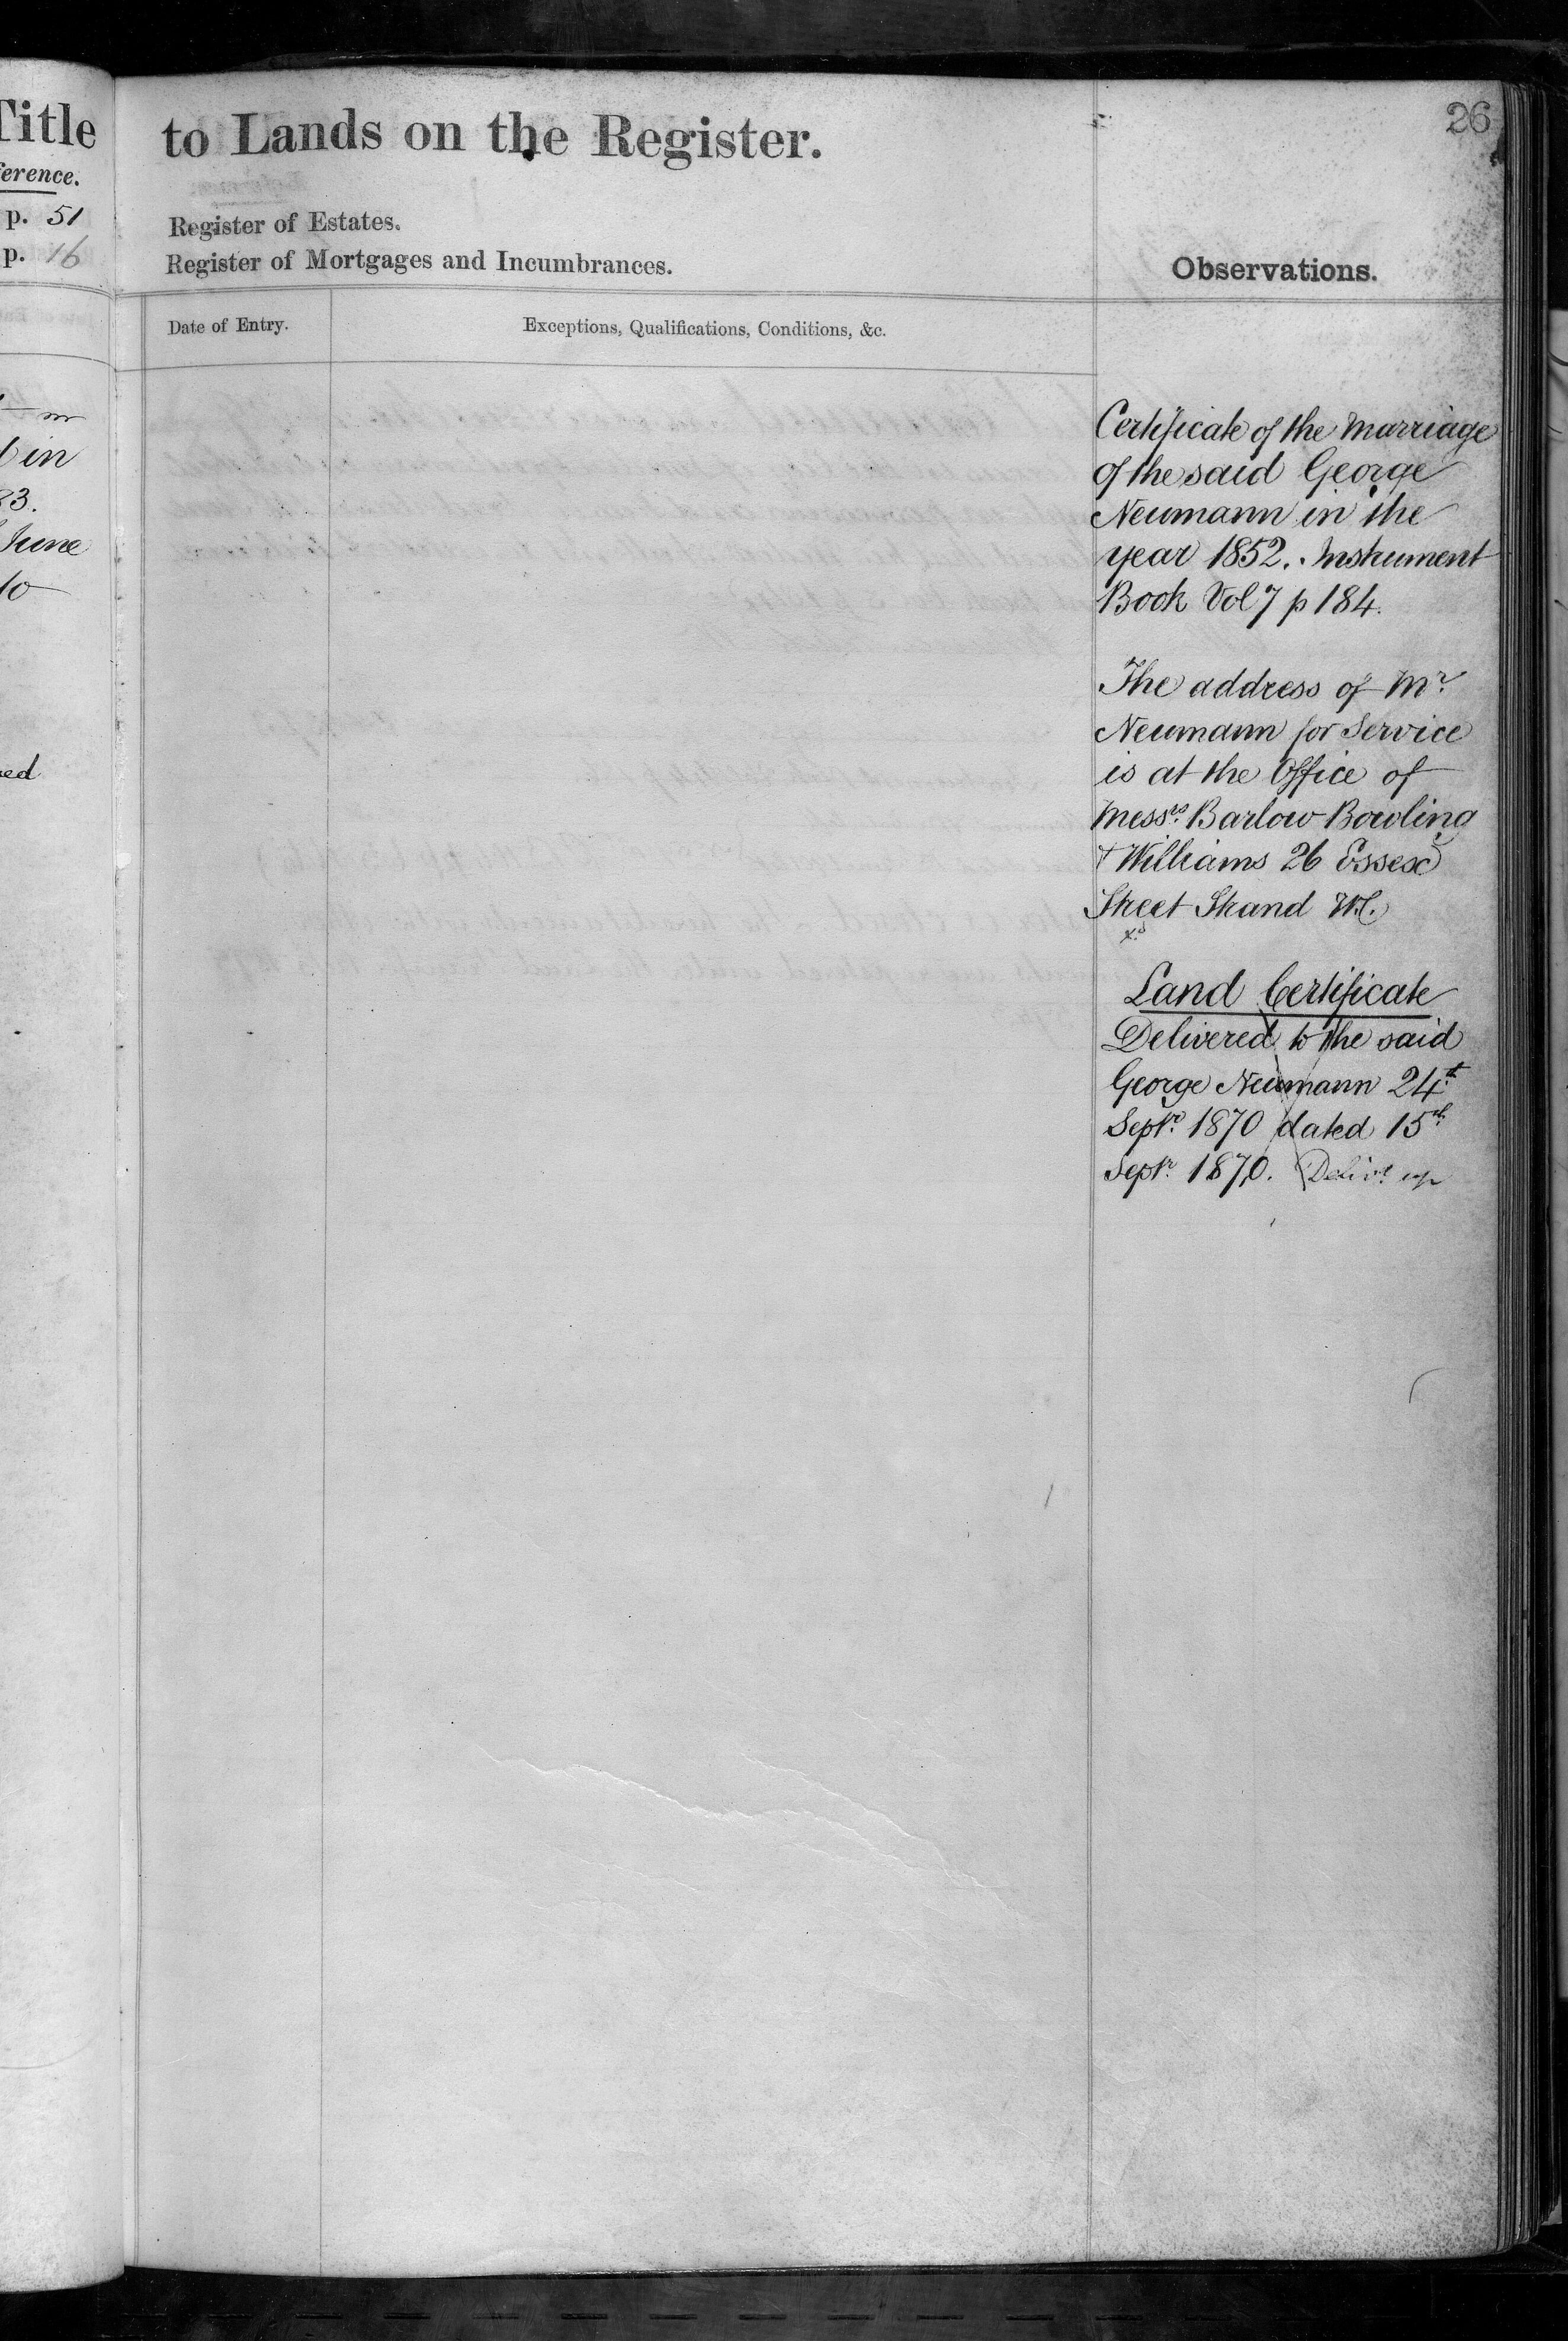 Title
ference.
p. 51
p. 16
in
83.
June
to
ed
26
to Lands on the Register.
Register of Estates.
Register of Mortgages and Incumbrances.
Observations.
Date of Entry.
Exceptions, Qualifications, Conditions, &c.
Certificate of the Marriage
of the said George
Neumann in the
year 1852. Instrument
Book Vol 7 p 184.
The address of Mr.
Neumann for Service
is at the Office of
Messrs. Barlow Bowling
& Williams 26 Essex
Street Strand W.C.
Land Certificate
Delivered to the said
George Neumann 24th
Septr. 1870 dated 15th
Septr. 1870. Delivd. up